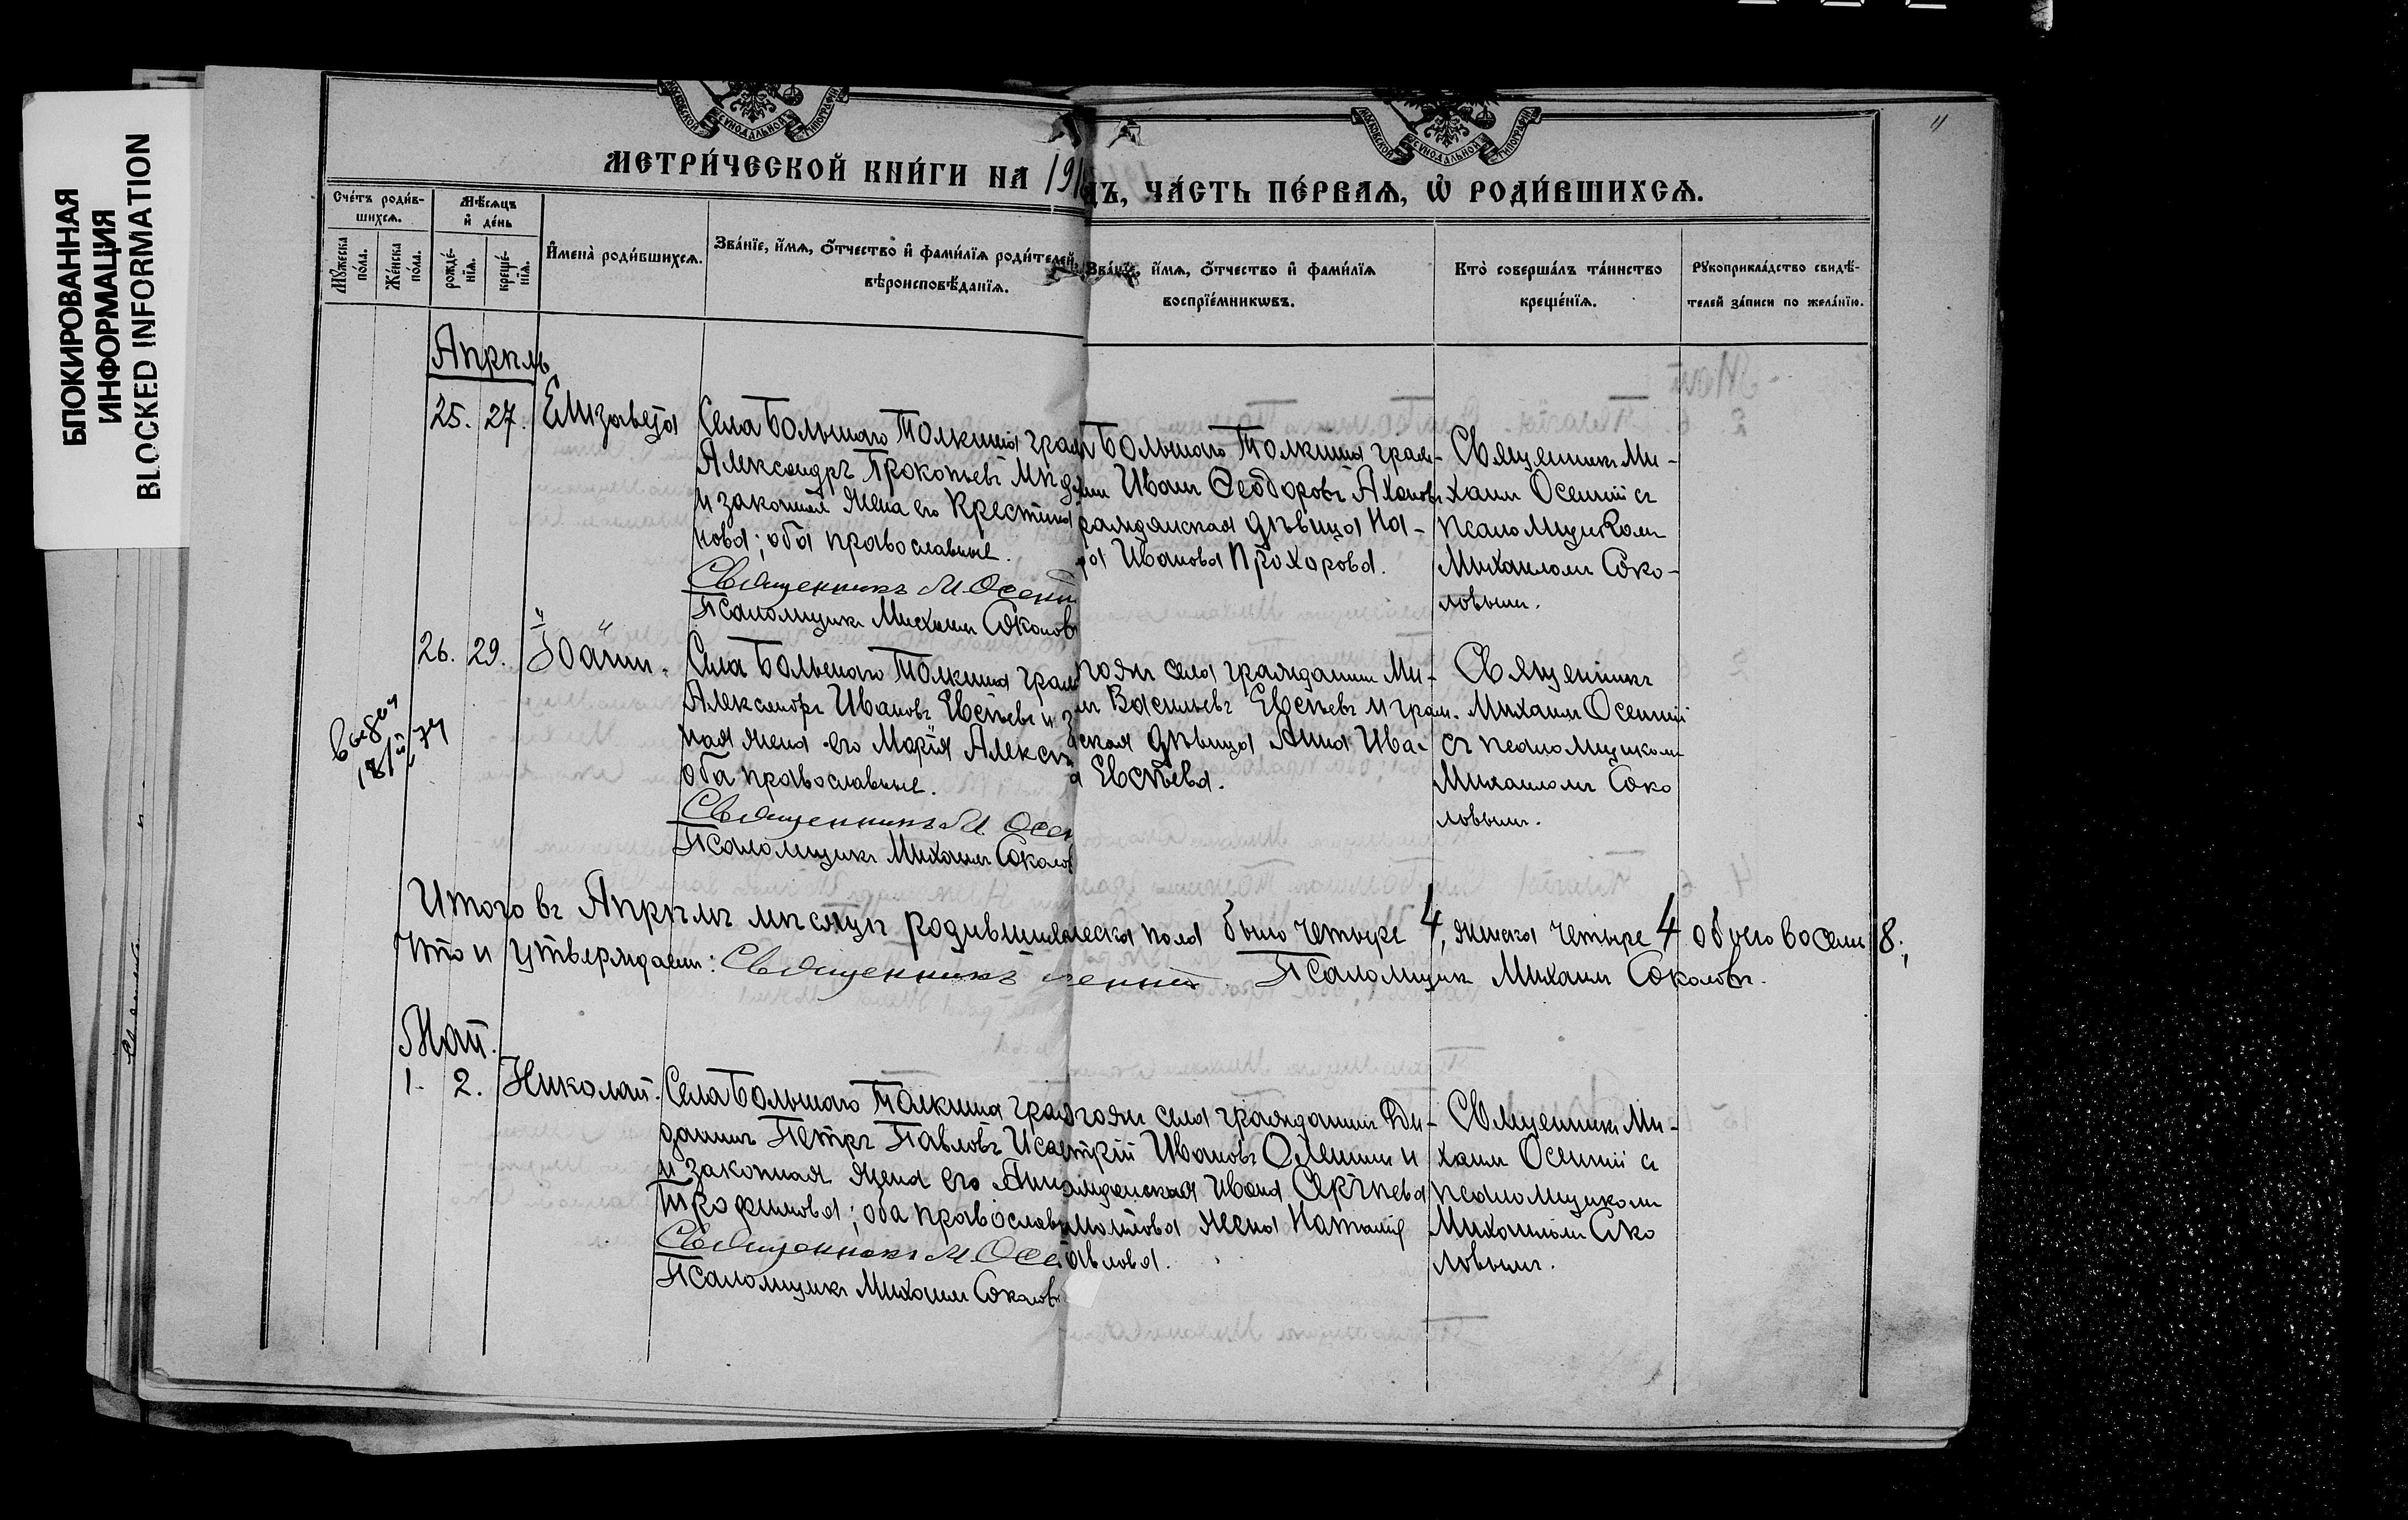 БЛОКИРОВАННАЯ
ИНФОРМАЦИЯ
BLOCKED INFORMATION
4
МОСКОВСКОЙ СѴНОДАЛЬНОЙ ТИПОГРАФІИ
МОСКОВСКОЙ СѴНОДАЛЬНОЙ ТИПОГРАФІИ
МЕТРИ́ЧЕСКОЙ КНИ́ГИ НА 191
ДЪ, ЧА́СТЬ ПЕ́РВАѦ, Ѡ РОДИ́ВШИХСѦ.
Сче́тъ роди́в-
шихсѧ.
Мѣ́сяцъ
и҆ де́нь
Мꙋ́жеска
по́ла.
Же́нска
по́ла.
рожде́-
нїѧ.
креще́-
нїѧ.
И҆мена̀ роди́вшихсѧ.
Зва́нїе, и҆́мѧ, ѻ҆́тчество и҆ фами́лїѧ роди́телей,
вѣроисповѣ́данїѧ.
Зва́нїе, и҆́мѧ, ѻ҆́тчество и҆ фами́лїѧ
воспрїе́мникѡвъ.
Кто̀ соверша́лъ та́инство
креще́нїѧ.
Рꙋкоприкла́дство свидѣ́-
телей за́писи по жела́нїю.
Апрѣль
25. 27. Елизавета
Села Большого Толкиша граж
Александръ Прокопьевъ
и законная жена его Крестина
нова; оба православные.
Священникъ М. Осенн
Псаломщикъ Михаилъ Соколовъ
Большого Толкиша граж-
Иванъ Ѳеодоровъ
ражданская дѣвица На-
Иванова Прохорова.
Священникъ Ми-
хаилъ Осенній съ
псаломщикомъ
Михаиломъ Соко-
ловымъ.
26. 29. Іоаннъ.
Села Большого Толкиша граж
Александръ Ивановъ Евсѣевъ и з
ная жена его Марія Алекс
оба православные.
Священникъ М. Осен
Псаломщикъ Михаилъ Соколов
гожъ села гражданинъ Ми-
лъ Васильевъ Евсѣевъ и граж-
ская дѣвица Анна Ива-
а Евсѣева.
Священникъ
Михаилъ Осенній
съ псаломщикомъ
Михаиломъ Соко
ловымъ.
18/II 74
Итого въ Апрѣлѣ мѣсяцѣ родившихся
жеска пола было четыре 4, женска четыре 4 обоего восемь 8;
Что и утверждаемъ: Священникъ
енній. Псаломщикъ Михаилъ Соколовъ.
Май.
1. 2. Николай.
Села Большого Толкиша граж
данинъ Петръ Павловъ Иса
и законная жена его Анн
Трофимова; оба православн
Священникъ М. Осе
Псаломщикъ Михаилъ Соколовъ
огожъ села гражданинъ Ди-
митрій Ивановъ и
жданская Ивана Сергѣева
жена Наталія
авлова.
Священникъ Ми-
хаилъ Осенній съ
псаломщикомъ
Михаиломъ Соко
ловымъ.